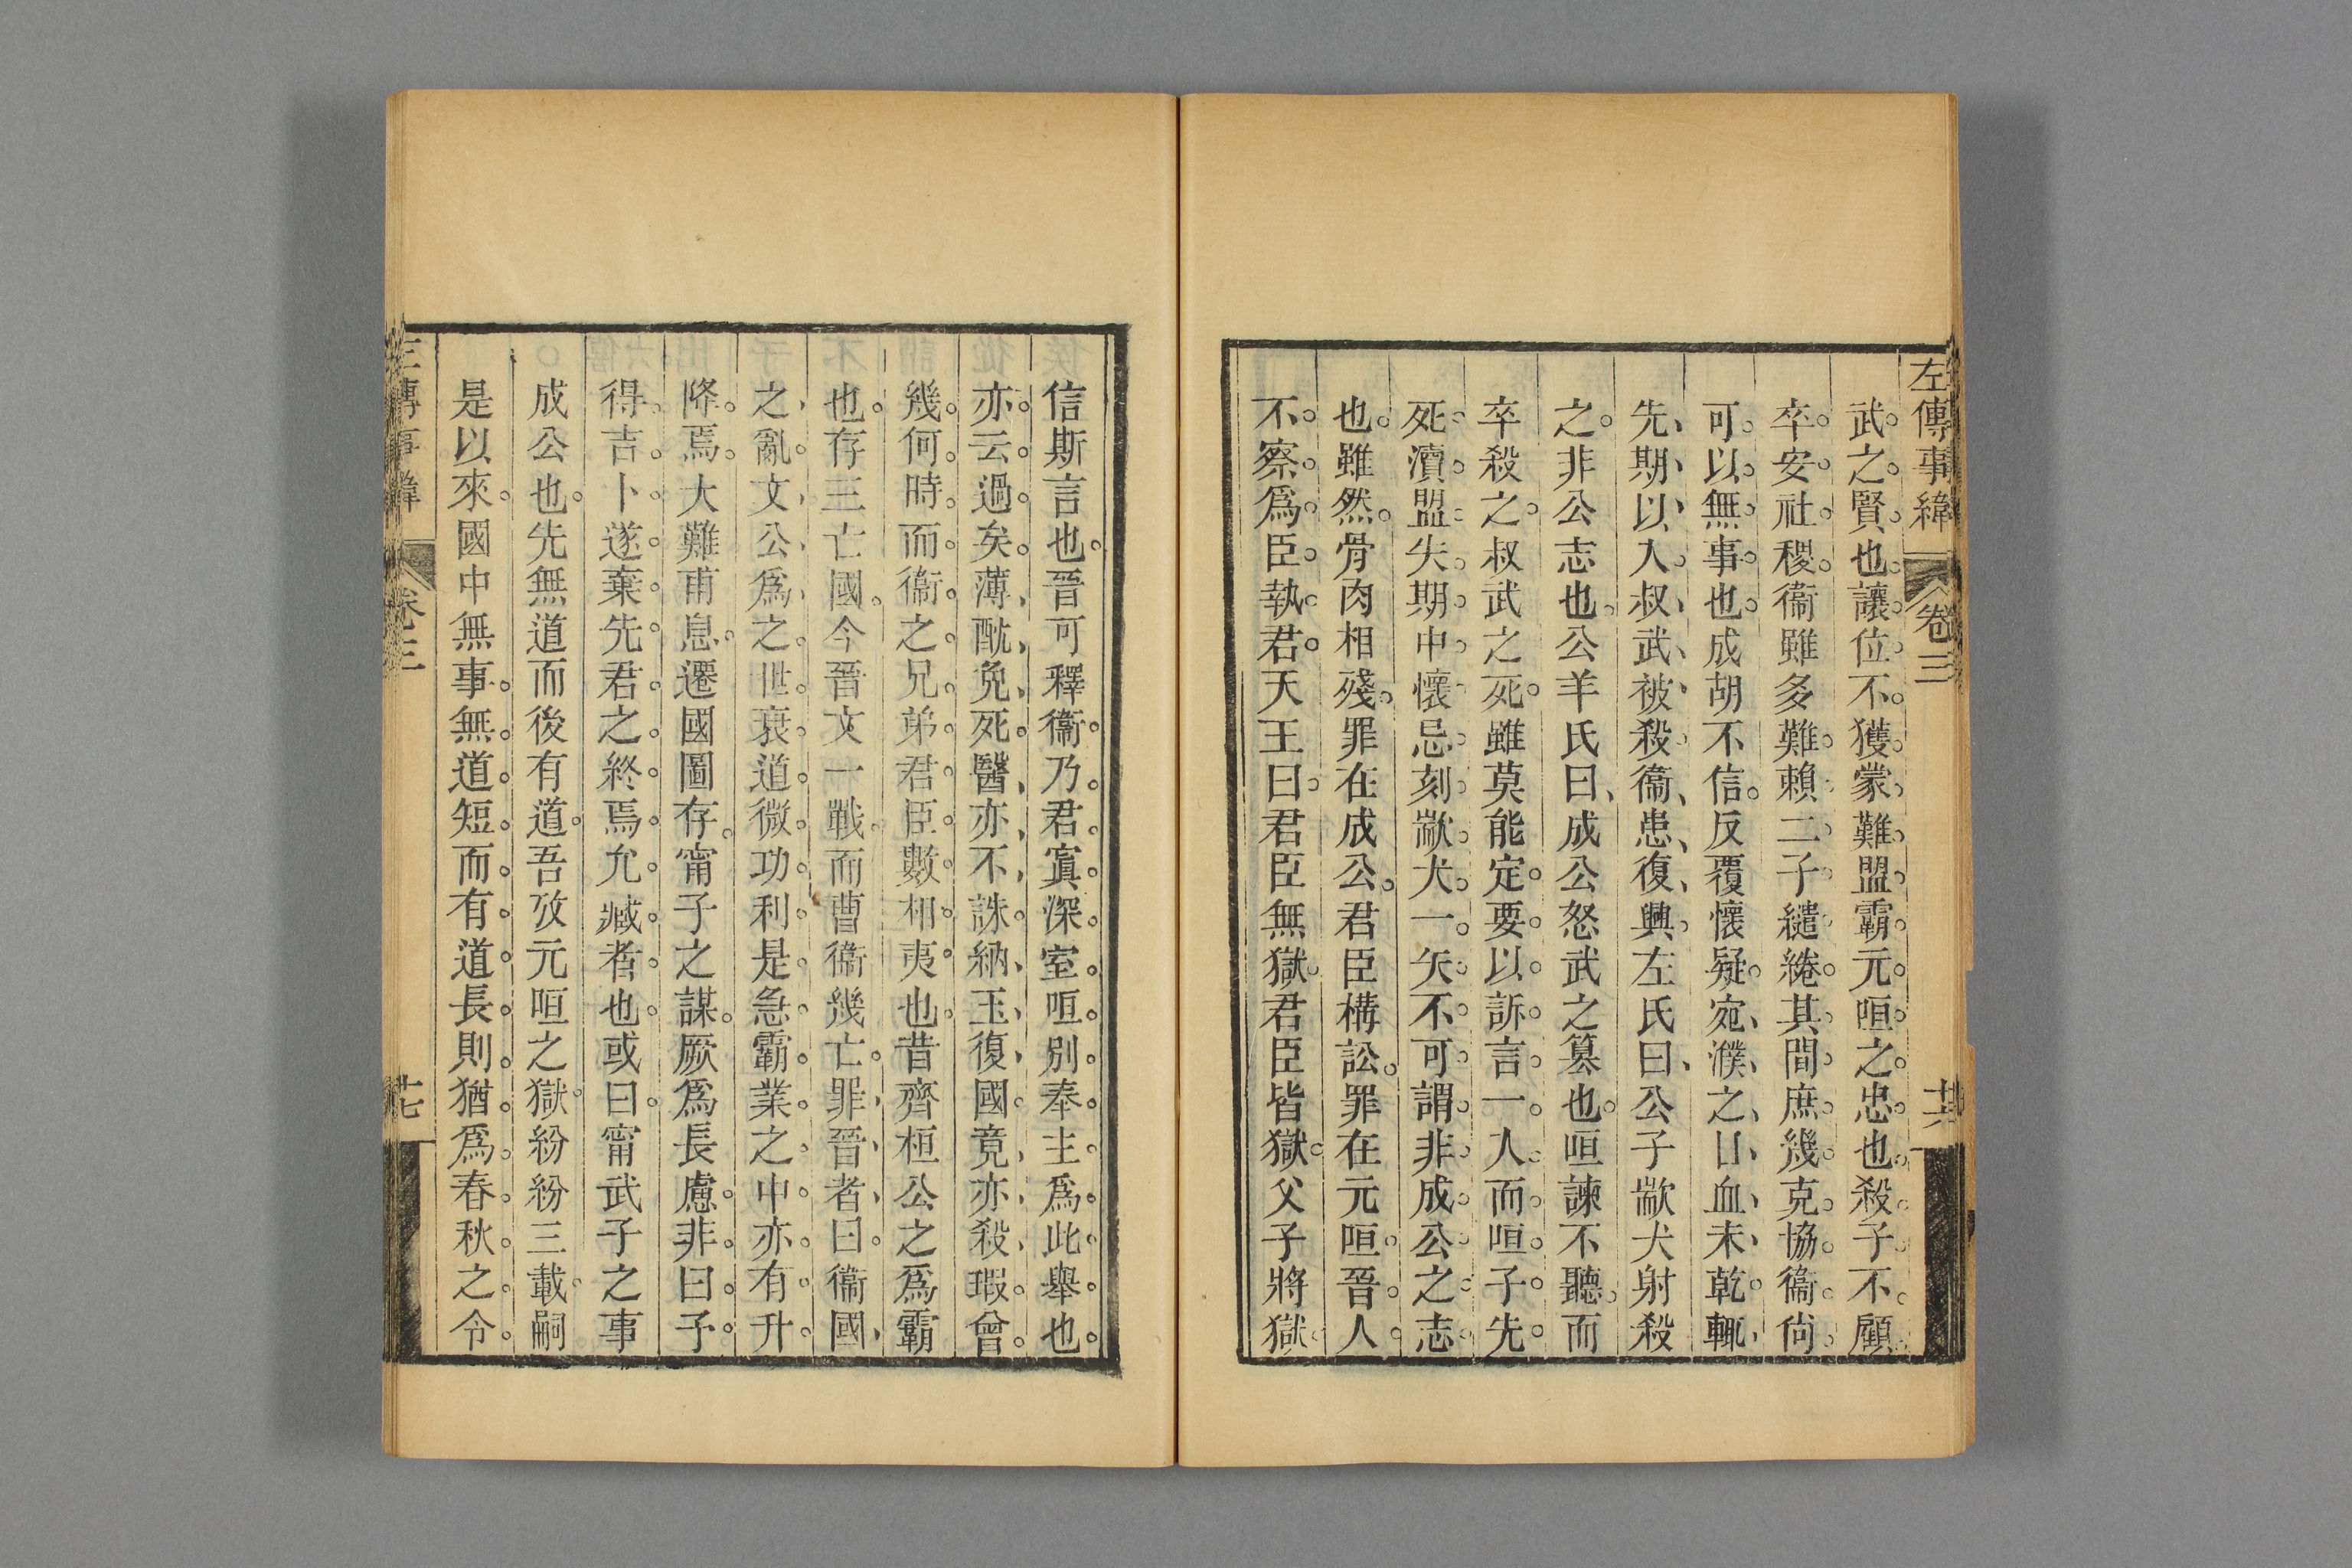 左傳事緯 卷三 十六
武之賢也讓位不獲蒙難盟霸元咺之忠也殺子不顧
卒安社稷衞雖多難賴二子繾綣其間庶幾克協衞尙
可以無事也成胡不信反覆懷疑宛濮之㰱血未乾輒
先期以入叔武被殺衞患復興左氏曰公子歂犬射殺
之非公志也公羊氏曰成公怒武之簒也咺諫不聽而
卒殺之叔武之死雖莫能定要以訴言一人而咺子先
死瀆盟失期中懷忌刻歂犬一矢不可謂非成公之志
也雖然骨肉相殘罪在成公君臣構訟罪在元咺晉人
不察爲臣執君天王曰君臣無獄君臣皆獄父子將獄
信斯言也晉可釋衞乃君寘深室咺別奉主爲此舉也
亦云過矣薄酖免死醫亦不誅納玉復國竟亦殺瑕曾
幾何時而衞之兄弟君臣數相夷也昔齊桓公之爲霸
也存三亡國今晉文一戰而曹衞幾亡罪晉者曰衞國
之亂文公爲之世衰道微功利是急霸業之中亦有升
降焉大難甫息遷國圖存甯子之謀厥爲長慮非曰予
得吉卜遂棄先君之終焉允臧者也或曰甯武子之事
成公也先無道而後有道吾攷元咺之獄紛紛三載嗣
是以來國中無事無道短而有道長則猶爲春秋之令
左傳事緯 卷三 十七